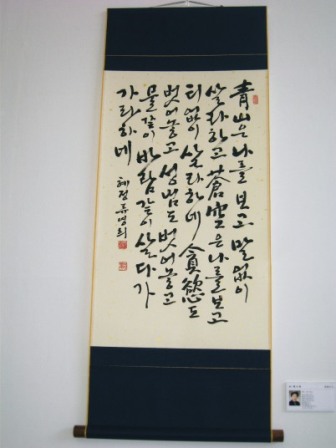 青山은 나를 보고 말없이
살라하고 蒼空은 나를 보고
티없이 살라하네 貪慾도
벗어놓고 성냄도 벗어놓고
물같이 바람같이 살다가
가라하네
혜정 류영희